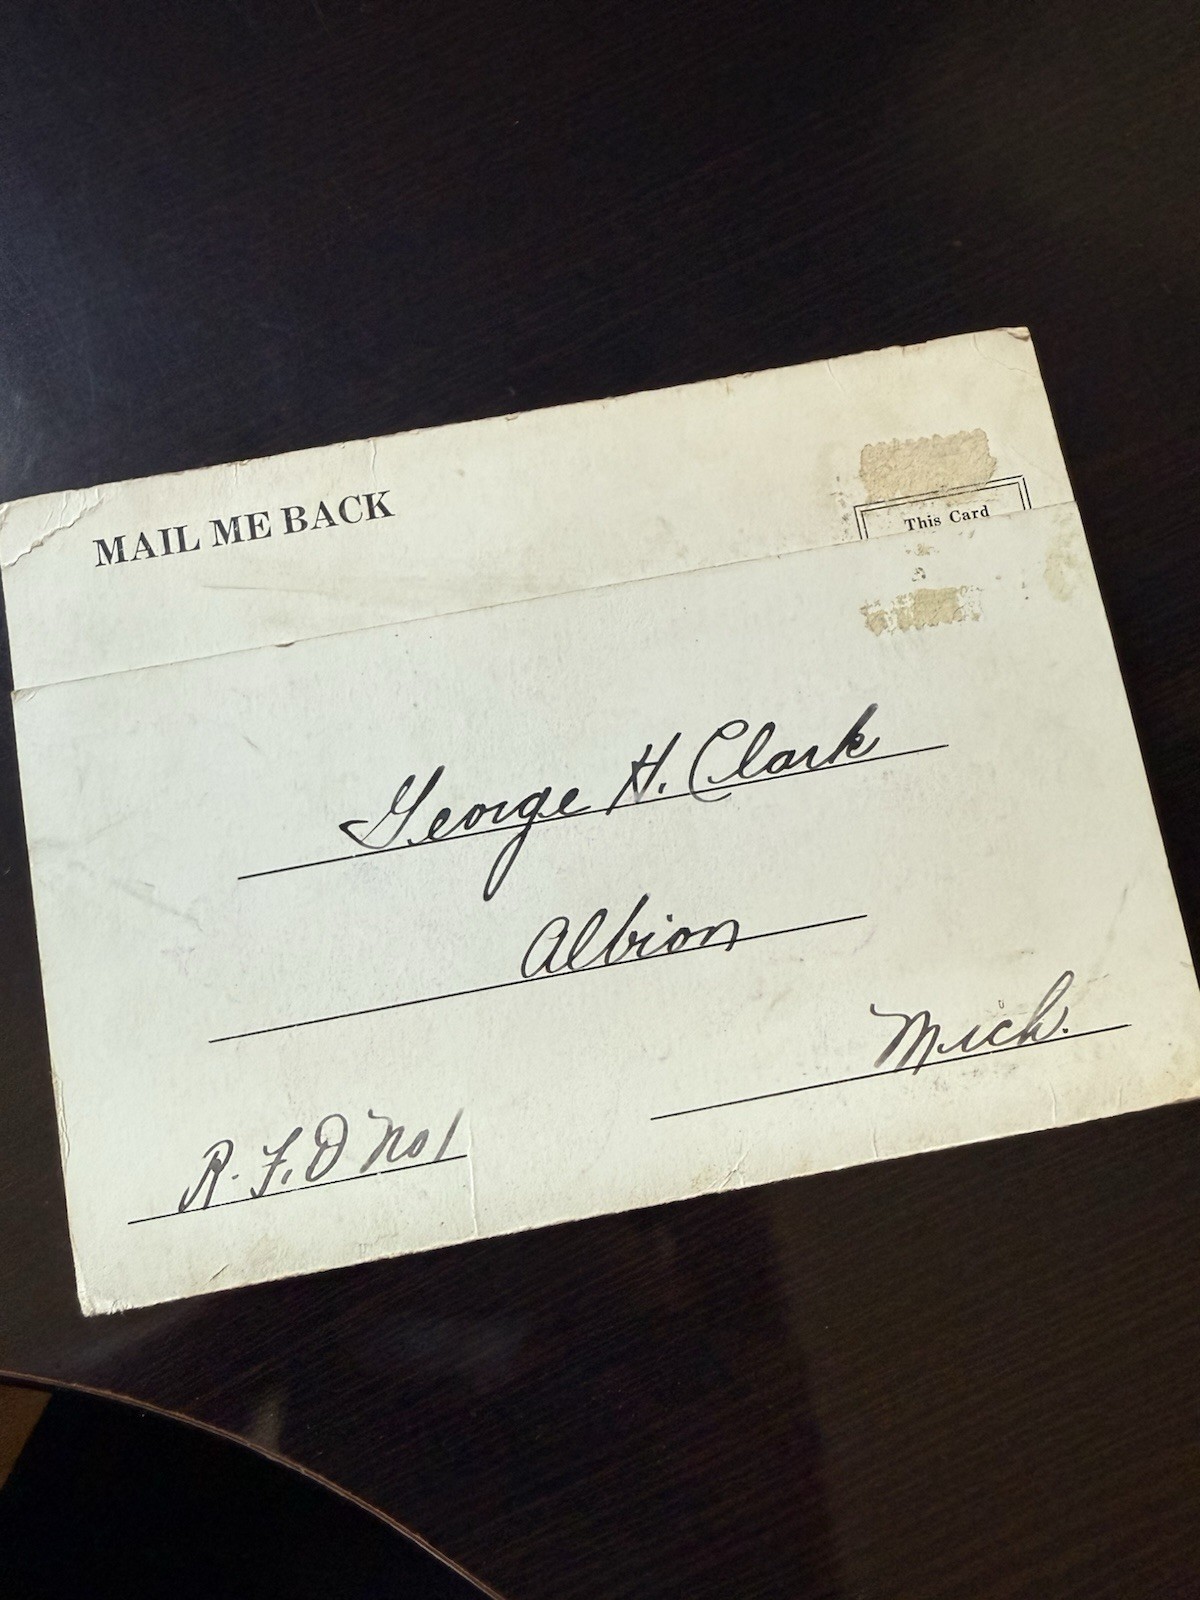 MAIL ME BACK
This Card
George H. Clark
Albion
Mich.
R. F. D No 1